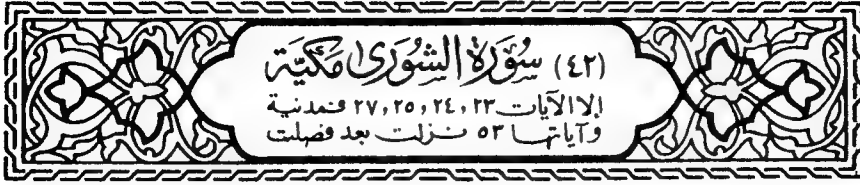 (٤٢) سُورَةُ الشُّورَى مَكِيَّة
إلا الآيات ٢٣، ٢٤، ٢٥، ٢٧ فمدنية
وآياتها ٥٣ نزلت بعد فصلت